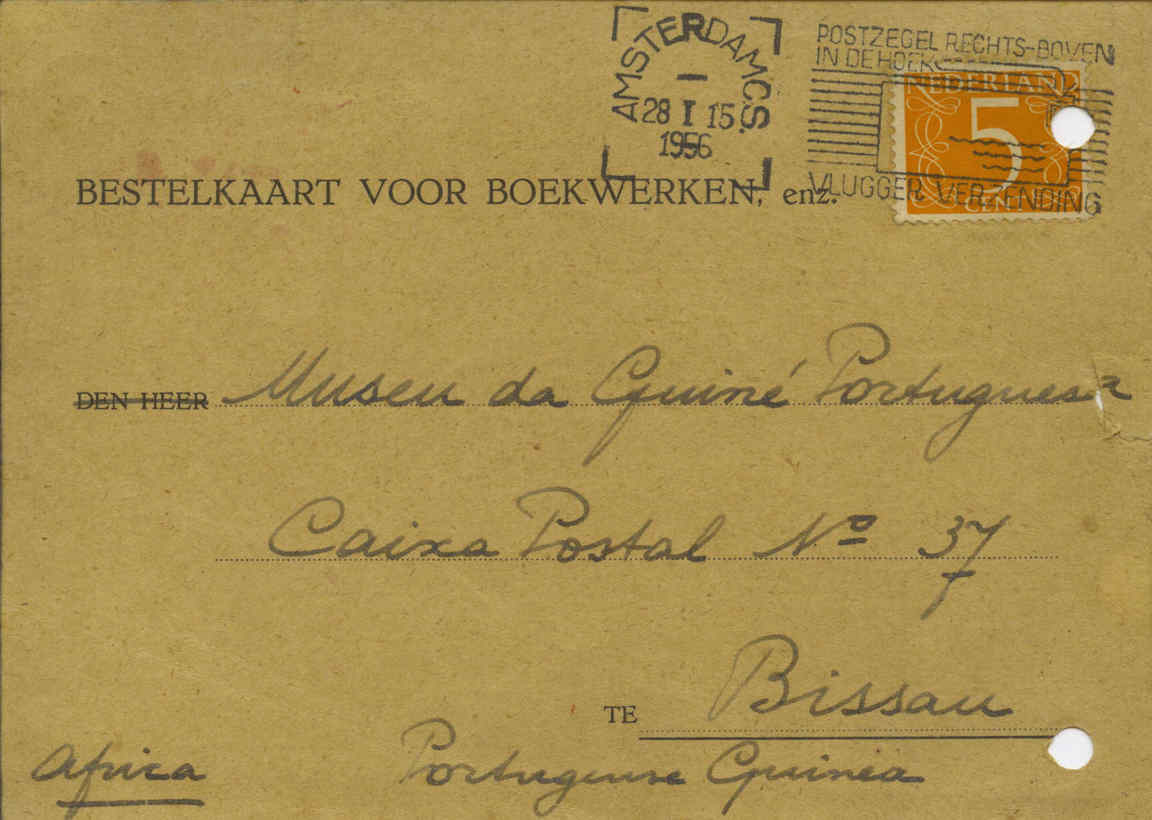 AMSTERDAM C.S.
28 I 15
1956
POSTZEGEL RECHTS-BOVEN
IN DE HOEK
VLUGGER VERZENDING
NEDERLAND
5
CENT
BESTELKAART VOOR BOEKWERKEN, enz.
DEN HEER Museu da Guiné Portuguesa
Caixa Postal Nº 37
TE Bissau
Africa Portuguese Guinea